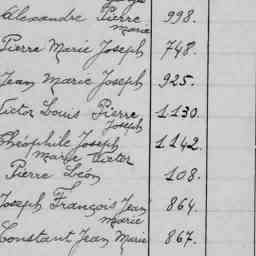 Alexandre Pierre 998.
Marie
Pierre Marie Joseph 748.
Jean Marie Joseph 925.
Victor Louis Pierre 1130.
Joseph
Théophile Joseph 1142.
Marie Victor
Pierre Léon 108.
Joseph François Jean 864.
Marie
Constant Jean Marie 867.